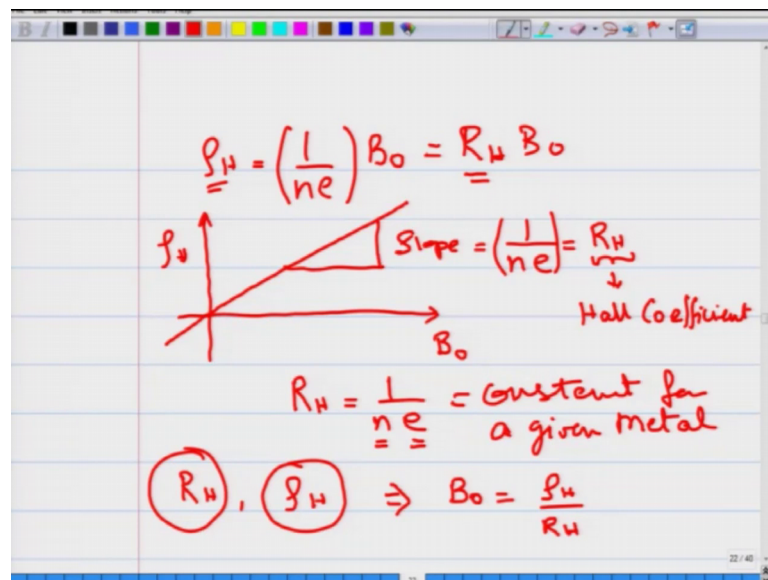 ρH = (1/ne) B0 = RH B0
ρH
Slope = (1/ne) = RH
↓
Hall Coefficient
B0
RH = 1/ne = constant for
a given metal
RH, ρH ⇒ B0 = ρH/RH
22 / 40